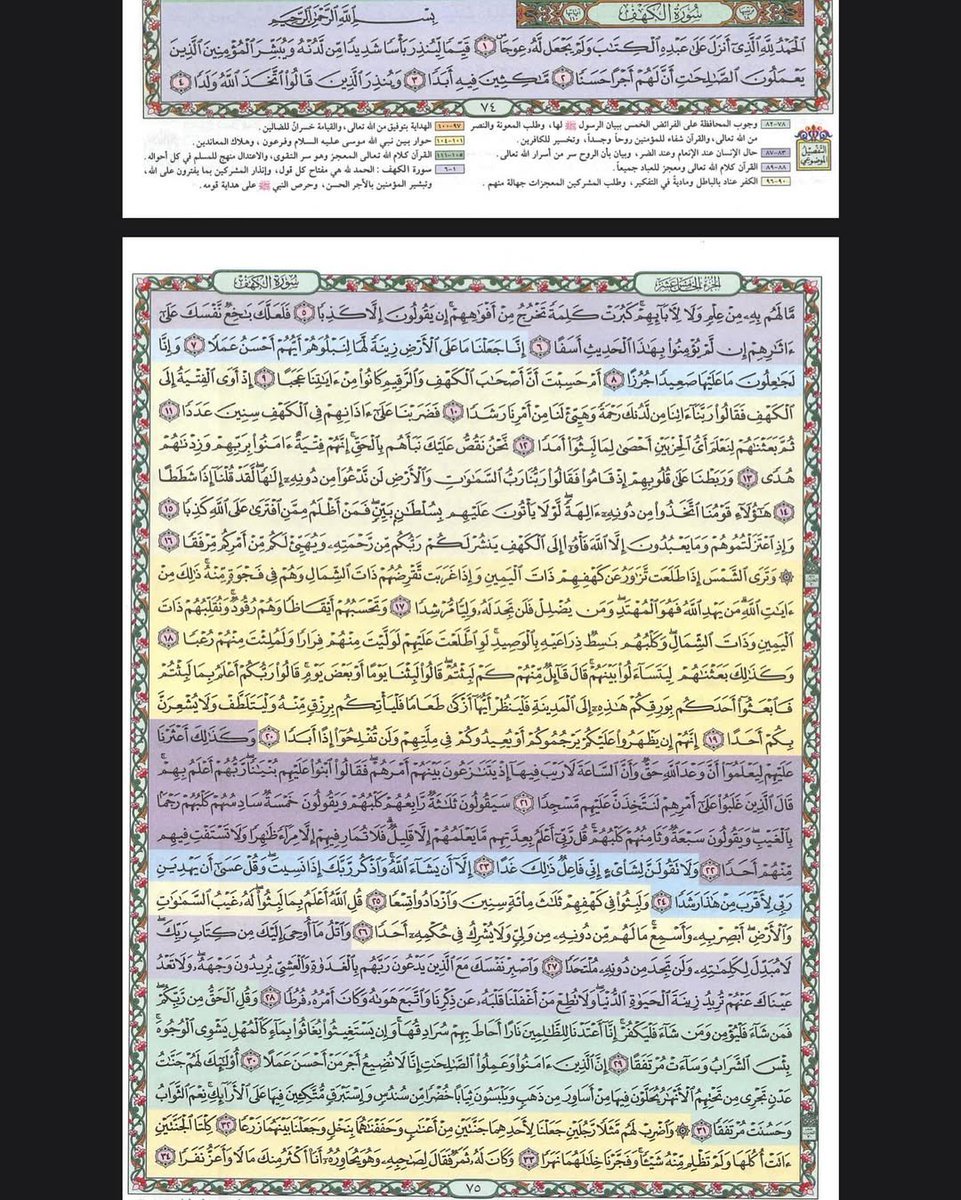 سُورَةُ الكَهْفِ
بِسْمِ اللَّهِ الرَّحْمَٰنِ الرَّحِيمِ
الْحَمْدُ لِلَّهِ الَّذِي أَنزَلَ عَلَىٰ عَبْدِهِ الْكِتَابَ وَلَمْ يَجْعَل لَّهُ عِوَجَا ١ قَيِّمًا لِّيُنذِرَ بَأْسًا شَدِيدًا مِّن لَّدُنْهُ وَيُبَشِّرَ الْمُؤْمِنِينَ الَّذِينَ
يَعْمَلُونَ الصَّالِحَاتِ أَنَّ لَهُمْ أَجْرًا حَسَنًا ٢ مَّاكِثِينَ فِيهِ أَبَدًا ٣ وَيُنذِرَ الَّذِينَ قَالُوا اتَّخَذَ اللَّهُ وَلَدًا ٤
٧٤
التفصيل الموضوعي
٧٨-٨٢ وجوب المحافظة على الفرائض الخمس ببيان الرسول ﷺ لها، وطلب المعونة والنصر
من الله تعالى، والقرآن شفاء للمؤمنين روحاً وجسداً، وتخسير للكافرين.
٨٣-٨٧ حال الإنسان عند الإنعام وعند الضر، وبيان بأن الروح سر من أسرار الله تعالى.
٨٨-٨٩ القرآن كلام الله تعالى ومعجز للعباد جميعاً.
٩٠-٩٦ الكفر عناد بالباطل ومادية في التفكير، وطلب المشركين المعجزات جهالة منهم.
٩٧-١٠٠ الهداية بتوفيق من الله تعالى، والقيامة خسران للضالين.
١٠١-١٠٤ حوار بين نبي الله موسى عليه السلام وفرعون، وهلاك المعاندين.
١٠٥-١١١ القرآن كلام الله تعالى المعجز وهو سر التقوى، والاعتدال منهج للمسلم في كل أحواله.
١-٦ سورة الكهف: الحمد لله هي مفتاح كل قول، وإنذار المشركين بما يفترون على الله،
وتبشير المؤمنين بالأجر الحسن، وحرص النبي ﷺ على هداية قومه.
الجزء الخامس عشر
سُورَةُ الكَهْفِ
مَّا لَهُم بِهِ مِنْ عِلْمٍ وَلَا لِآبَائِهِمْ كَبُرَتْ كَلِمَةً تَخْرُجُ مِنْ أَفْوَاهِهِمْ إِن يَقُولُونَ إِلَّا كَذِبًا ٥ فَلَعَلَّكَ بَاخِعٌ نَّفْسَكَ عَلَىٰ
آثَارِهِمْ إِن لَّمْ يُؤْمِنُوا بِهَٰذَا الْحَدِيثِ أَسَفًا ٦ إِنَّا جَعَلْنَا مَا عَلَى الْأَرْضِ زِينَةً لَّهَا لِنَبْلُوَهُمْ أَيُّهُمْ أَحْسَنُ عَمَلًا ٧ وَإِنَّا
لَجَاعِلُونَ مَا عَلَيْهَا صَعِيدًا جُرُزًا ٨ أَمْ حَسِبْتَ أَنَّ أَصْحَابَ الْكَهْفِ وَالرَّقِيمِ كَانُوا مِنْ آيَاتِنَا عَجَبًا ٩ إِذْ أَوَى الْفِتْيَةُ إِلَى
الْكَهْفِ فَقَالُوا رَبَّنَا آتِنَا مِن لَّدُنكَ رَحْمَةً وَهَيِّئْ لَنَا مِنْ أَمْرِنَا رَشَدًا ١٠ فَضَرَبْنَا عَلَىٰ آذَانِهِمْ فِي الْكَهْفِ سِنِينَ عَدَدًا ١١
ثُمَّ بَعَثْنَاهُمْ لِنَعْلَمَ أَيُّ الْحِزْبَيْنِ أَحْصَىٰ لِمَا لَبِثُوا أَمَدًا ١٢ نَّحْنُ نَقُصُّ عَلَيْكَ نَبَأَهُم بِالْحَقِّ إِنَّهُمْ فِتْيَةٌ آمَنُوا بِرَبِّهِمْ وَزِدْنَاهُمْ
هُدًى ١٣ وَرَبَطْنَا عَلَىٰ قُلُوبِهِمْ إِذْ قَامُوا فَقَالُوا رَبُّنَا رَبُّ السَّمَاوَاتِ وَالْأَرْضِ لَن نَّدْعُوَ مِن دُونِهِ إِلَٰهًا لَّقَدْ قُلْنَا إِذًا شَطَطًا
١٤ هَٰؤُلَاءِ قَوْمُنَا اتَّخَذُوا مِن دُونِهِ آلِهَةً لَّوْلَا يَأْتُونَ عَلَيْهِم بِسُلْطَانٍ بَيِّنٍ فَمَنْ أَظْلَمُ مِمَّنِ افْتَرَىٰ عَلَى اللَّهِ كَذِبًا ١٥
وَإِذِ اعْتَزَلْتُمُوهُمْ وَمَا يَعْبُدُونَ إِلَّا اللَّهَ فَأْوُوا إِلَى الْكَهْفِ يَنشُرْ لَكُمْ رَبُّكُم مِّن رَّحْمَتِهِ وَيُهَيِّئْ لَكُم مِّنْ أَمْرِكُم مِّرْفَقًا ١٦
۞ وَتَرَى الشَّمْسَ إِذَا طَلَعَت تَّزَاوَرُ عَن كَهْفِهِمْ ذَاتَ الْيَمِينِ وَإِذَا غَرَبَت تَّقْرِضُهُمْ ذَاتَ الشِّمَالِ وَهُمْ فِي فَجْوَةٍ مِّنْهُ ذَٰلِكَ مِنْ
آيَاتِ اللَّهِ مَن يَهْدِ اللَّهُ فَهُوَ الْمُهْتَدِ وَمَن يُضْلِلْ فَلَن تَجِدَ لَهُ وَلِيًّا مُّرْشِدًا ١٧ وَتَحْسَبُهُمْ أَيْقَاظًا وَهُمْ رُقُودٌ وَنُقَلِّبُهُمْ ذَاتَ
الْيَمِينِ وَذَاتَ الشِّمَالِ وَكَلْبُهُم بَاسِطٌ ذِرَاعَيْهِ بِالْوَصِيدِ لَوِ اطَّلَعْتَ عَلَيْهِمْ لَوَلَّيْتَ مِنْهُمْ فِرَارًا وَلَمُلِئْتَ مِنْهُمْ رُعْبًا ١٨
وَكَذَٰلِكَ بَعَثْنَاهُمْ لِيَتَسَاءَلُوا بَيْنَهُمْ قَالَ قَائِلٌ مِّنْهُمْ كَمْ لَبِثْتُمْ قَالُوا لَبِثْنَا يَوْمًا أَوْ بَعْضَ يَوْمٍ قَالُوا رَبُّكُمْ أَعْلَمُ بِمَا لَبِثْتُمْ
فَابْعَثُوا أَحَدَكُم بِوَرِقِكُمْ هَٰذِهِ إِلَى الْمَدِينَةِ فَلْيَنظُرْ أَيُّهَا أَزْكَىٰ طَعَامًا فَلْيَأْتِكُم بِرِزْقٍ مِّنْهُ وَلْيَتَلَطَّفْ وَلَا يُشْعِرَنَّ
بِكُمْ أَحَدًا ١٩ إِنَّهُمْ إِن يَظْهَرُوا عَلَيْكُمْ يَرْجُمُوكُمْ أَوْ يُعِيدُوكُمْ فِي مِلَّتِهِمْ وَلَن تُفْلِحُوا إِذًا أَبَدًا ٢٠ وَكَذَٰلِكَ أَعْثَرْنَا
عَلَيْهِمْ لِيَعْلَمُوا أَنَّ وَعْدَ اللَّهِ حَقٌّ وَأَنَّ السَّاعَةَ لَا رَيْبَ فِيهَا إِذْ يَتَنَازَعُونَ بَيْنَهُمْ أَمْرَهُمْ فَقَالُوا ابْنُوا عَلَيْهِم بُنْيَانًا رَّبُّهُمْ أَعْلَمُ بِهِمْ
قَالَ الَّذِينَ غَلَبُوا عَلَىٰ أَمْرِهِمْ لَنَتَّخِذَنَّ عَلَيْهِم مَّسْجِدًا ٢١ سَيَقُولُونَ ثَلَاثَةٌ رَّابِعُهُمْ كَلْبُهُمْ وَيَقُولُونَ خَمْسَةٌ سَادِسُهُمْ كَلْبُهُمْ رَجْمًا
بِالْغَيْبِ وَيَقُولُونَ سَبْعَةٌ وَثَامِنُهُمْ كَلْبُهُمْ قُل رَّبِّي أَعْلَمُ بِعِدَّتِهِم مَّا يَعْلَمُهُمْ إِلَّا قَلِيلٌ فَلَا تُمَارِ فِيهِمْ إِلَّا مِرَاءً ظَاهِرًا وَلَا تَسْتَفْتِ فِيهِم
مِّنْهُمْ أَحَدًا ٢٢ وَلَا تَقُولَنَّ لِشَايْءٍ إِنِّي فَاعِلٌ ذَٰلِكَ غَدًا ٢٣ إِلَّا أَن يَشَاءَ اللَّهُ وَاذْكُر رَّبَّكَ إِذَا نَسِيتَ وَقُلْ عَسَىٰ أَن يَهْدِيَنِ
رَبِّي لِأَقْرَبَ مِنْ هَٰذَا رَشَدًا ٢٤ وَلَبِثُوا فِي كَهْفِهِمْ ثَلَاثَ مِائَةٍ سِنِينَ وَازْدَادُوا تِسْعًا ٢٥ قُلِ اللَّهُ أَعْلَمُ بِمَا لَبِثُوا لَهُ غَيْبُ السَّمَاوَاتِ
وَالْأَرْضِ أَبْصِرْ بِهِ وَأَسْمِعْ مَا لَهُم مِّن دُونِهِ مِن وَلِيٍّ وَلَا يُشْرِكُ فِي حُكْمِهِ أَحَدًا ٢٦ وَاتْلُ مَا أُوحِيَ إِلَيْكَ مِن كِتَابِ رَبِّكَ
لَا مُبَدِّلَ لِكَلِمَاتِهِ وَلَن تَجِدَ مِن دُونِهِ مُلْتَحَدًا ٢٧ وَاصْبِرْ نَفْسَكَ مَعَ الَّذِينَ يَدْعُونَ رَبَّهُم بِالْغَدَاةِ وَالْعَشِيِّ يُرِيدُونَ وَجْهَهُ وَلَا تَعْدُ
عَيْنَاكَ عَنْهُمْ تُرِيدُ زِينَةَ الْحَيَاةِ الدُّنْيَا وَلَا تُطِعْ مَنْ أَغْفَلْنَا قَلْبَهُ عَن ذِكْرِنَا وَاتَّبَعَ هَوَاهُ وَكَانَ أَمْرُهُ فُرُطًا ٢٨ وَقُلِ الْحَقُّ مِن رَّبِّكُمْ
فَمَن شَاءَ فَلْيُؤْمِن وَمَن شَاءَ فَلْيَكْفُرْ إِنَّا أَعْتَدْنَا لِلظَّالِمِينَ نَارًا أَحَاطَ بِهِمْ سُرَادِقُهَا وَإِن يَسْتَغِيثُوا يُغَاثُوا بِمَاءٍ كَالْمُهْلِ يَشْوِي الْوُجُوهَ
بِئْسَ الشَّرَابُ وَسَاءَتْ مُرْتَفَقًا ٢٩ إِنَّ الَّذِينَ آمَنُوا وَعَمِلُوا الصَّالِحَاتِ إِنَّا لَا نُضِيعُ أَجْرَ مَنْ أَحْسَنَ عَمَلًا ٣٠ أُولَٰئِكَ لَهُمْ جَنَّاتُ
عَدْنٍ تَجْرِي مِن تَحْتِهِمُ الْأَنْهَارُ يُحَلَّوْنَ فِيهَا مِنْ أَسَاوِرَ مِن ذَهَبٍ وَيَلْبَسُونَ ثِيَابًا خُضْرًا مِّن سُندُسٍ وَإِسْتَبْرَقٍ مُّتَّكِئِينَ فِيهَا عَلَى الْأَرَائِكِ نِعْمَ الثَّوَابُ
وَحَسُنَتْ مُرْتَفَقًا ٣١ ۞ وَاضْرِبْ لَهُم مَّثَلًا رَّجُلَيْنِ جَعَلْنَا لِأَحَدِهِمَا جَنَّتَيْنِ مِنْ أَعْنَابٍ وَحَفَفْنَاهُمَا بِنَخْلٍ وَجَعَلْنَا بَيْنَهُمَا زَرْعًا ٣٢ كِلْتَا الْجَنَّتَيْنِ
آتَتْ أُكُلَهَا وَلَمْ تَظْلِم مِّنْهُ شَيْئًا وَفَجَّرْنَا خِلَالَهُمَا نَهَرًا ٣٣ وَكَانَ لَهُ ثَمَرٌ فَقَالَ لِصَاحِبِهِ وَهُوَ يُحَاوِرُهُ أَنَا أَكْثَرُ مِنكَ مَالًا وَأَعَزُّ نَفَرًا ٣٤
٧٥